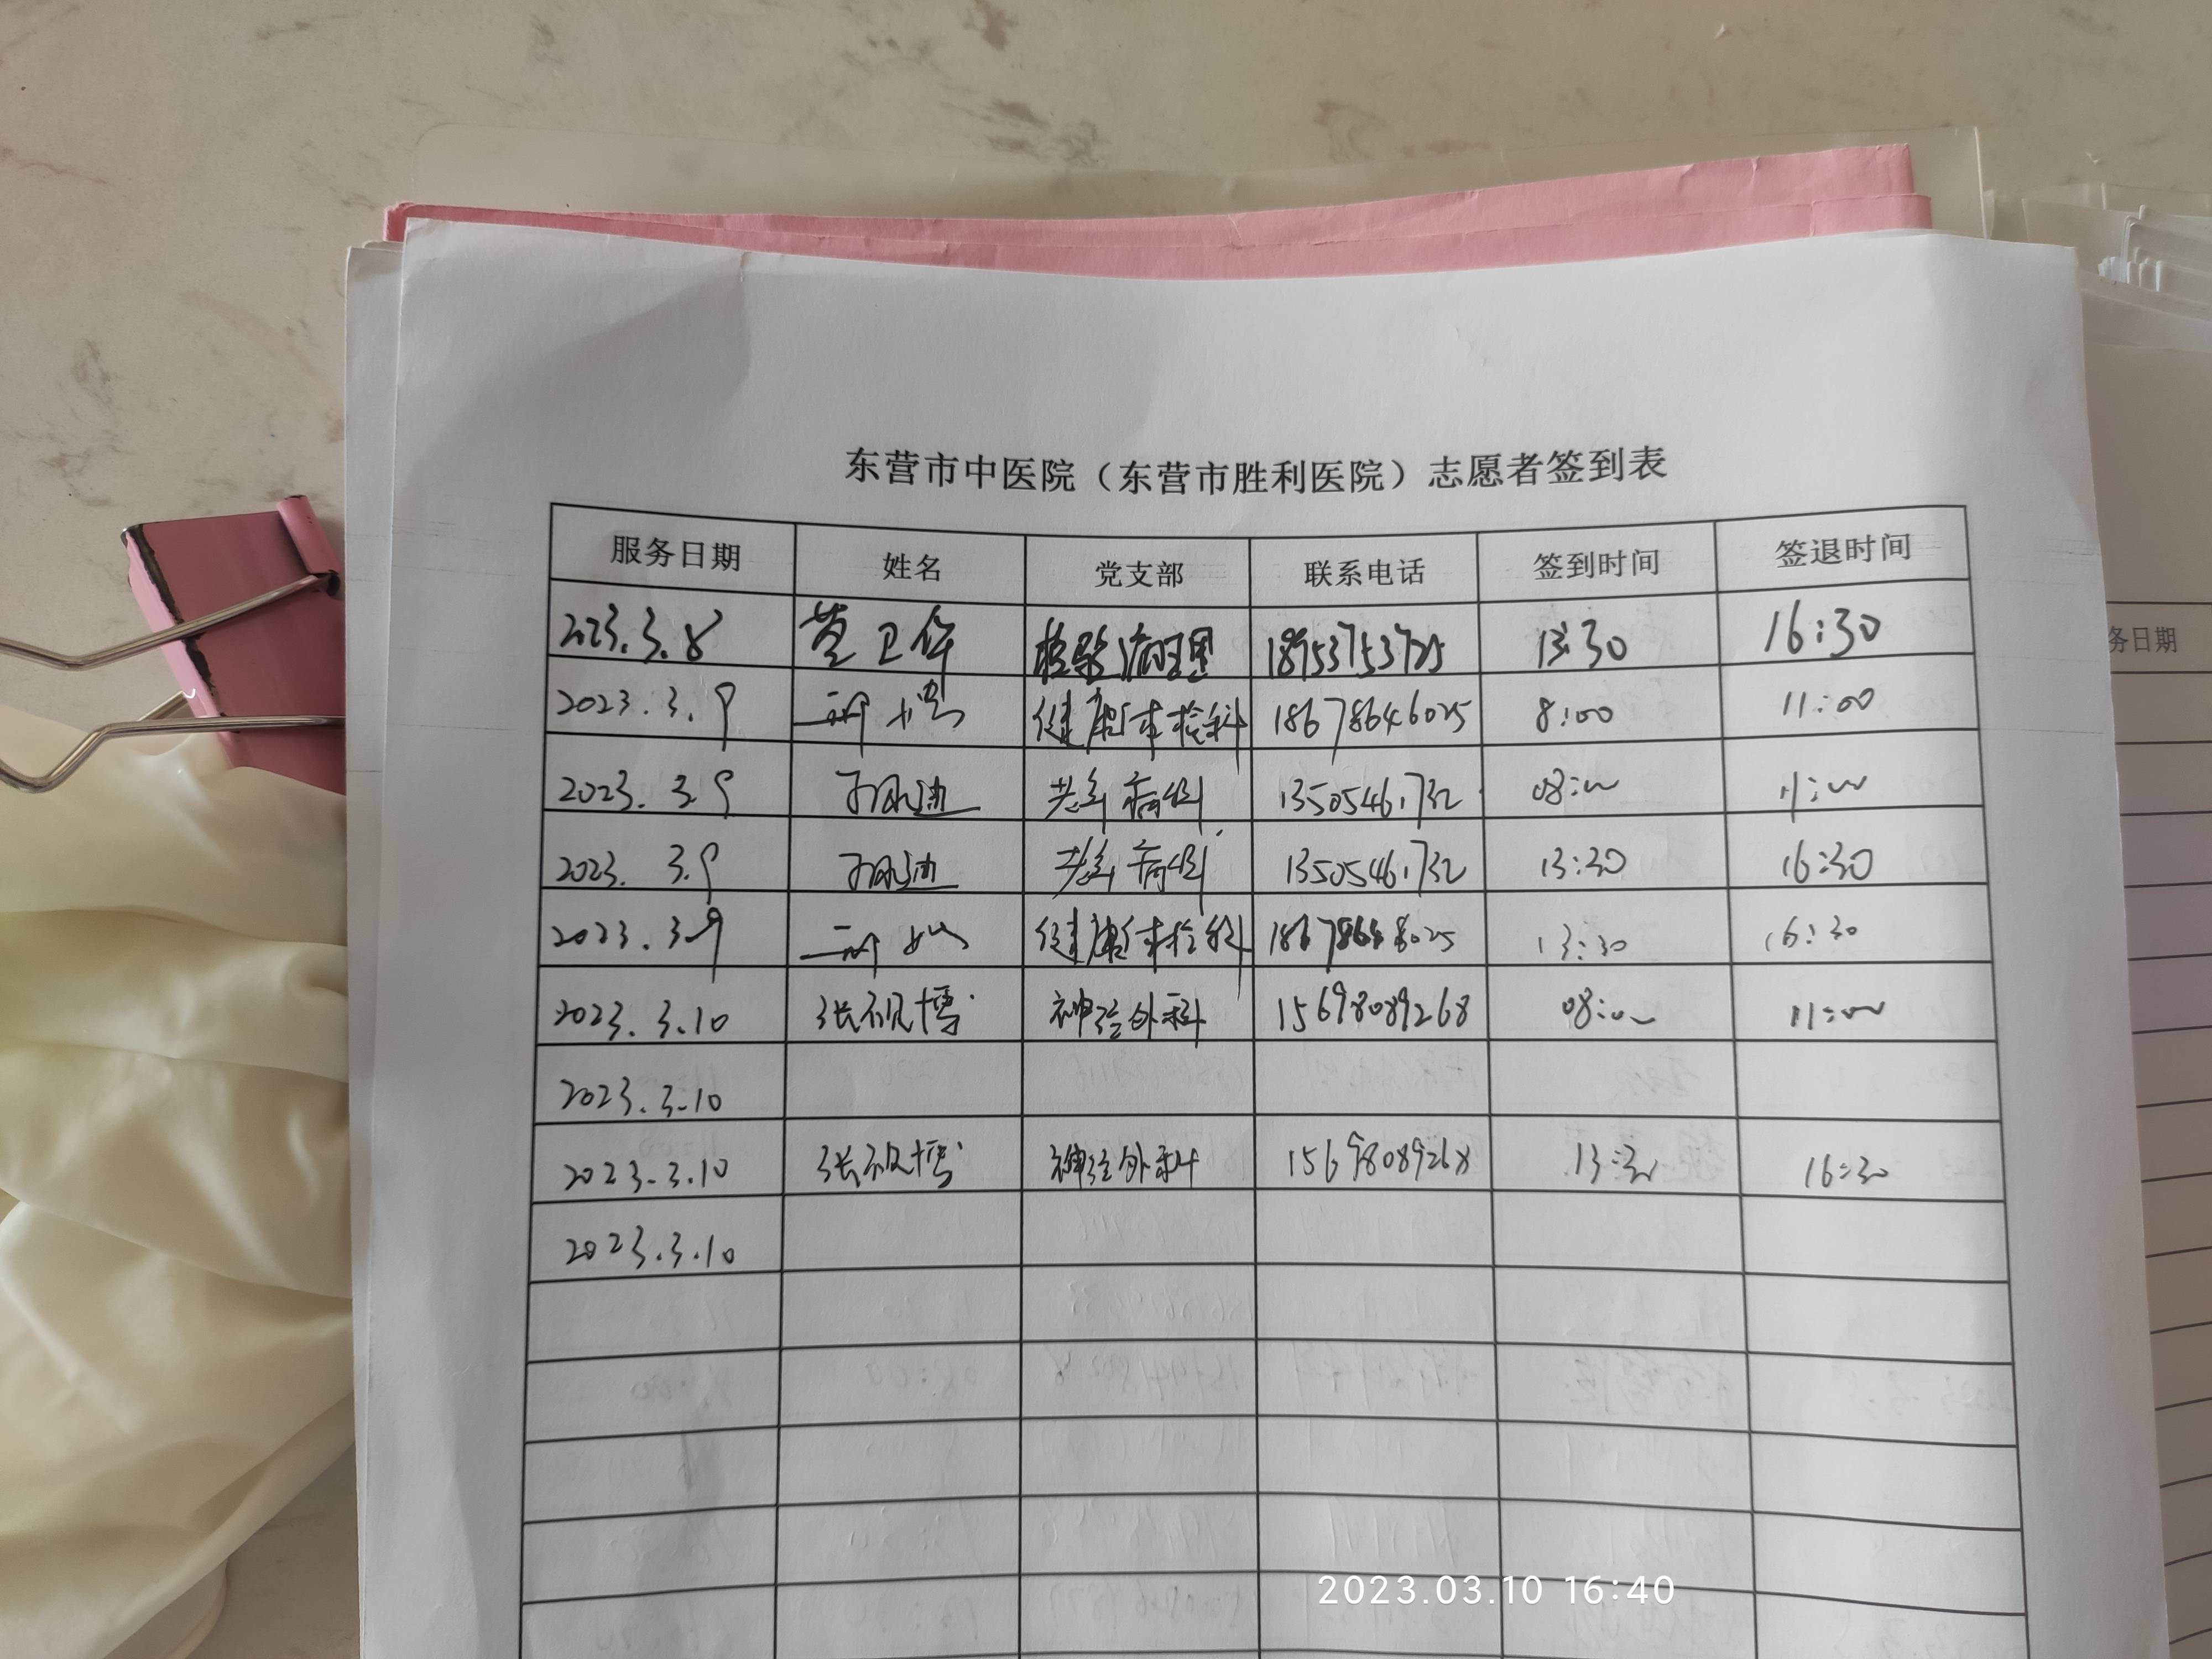 东营市中医院（东营市胜利医院）志愿者签到表
服务日期 姓名 党支部 联系电话 签到时间 签退时间
2023.3.8 卫华 检验病理 13:30 16:30
2023.3.9 健康体检科 18678646025 8:00 11:00
2023.3.9 老年病科 08:00 11:00
2023.3.9 老年病科 13:30 16:30
2023.3.9 健康体检科 13:30 16:30
2023.3.10 张 博 神经外科 15698089268 08:00 11:00
2023.3.10
2023.3.10 张 博 神经外科 15698089268 13:30 16:30
2023.3.10
务日期
2023.03.10 16:40